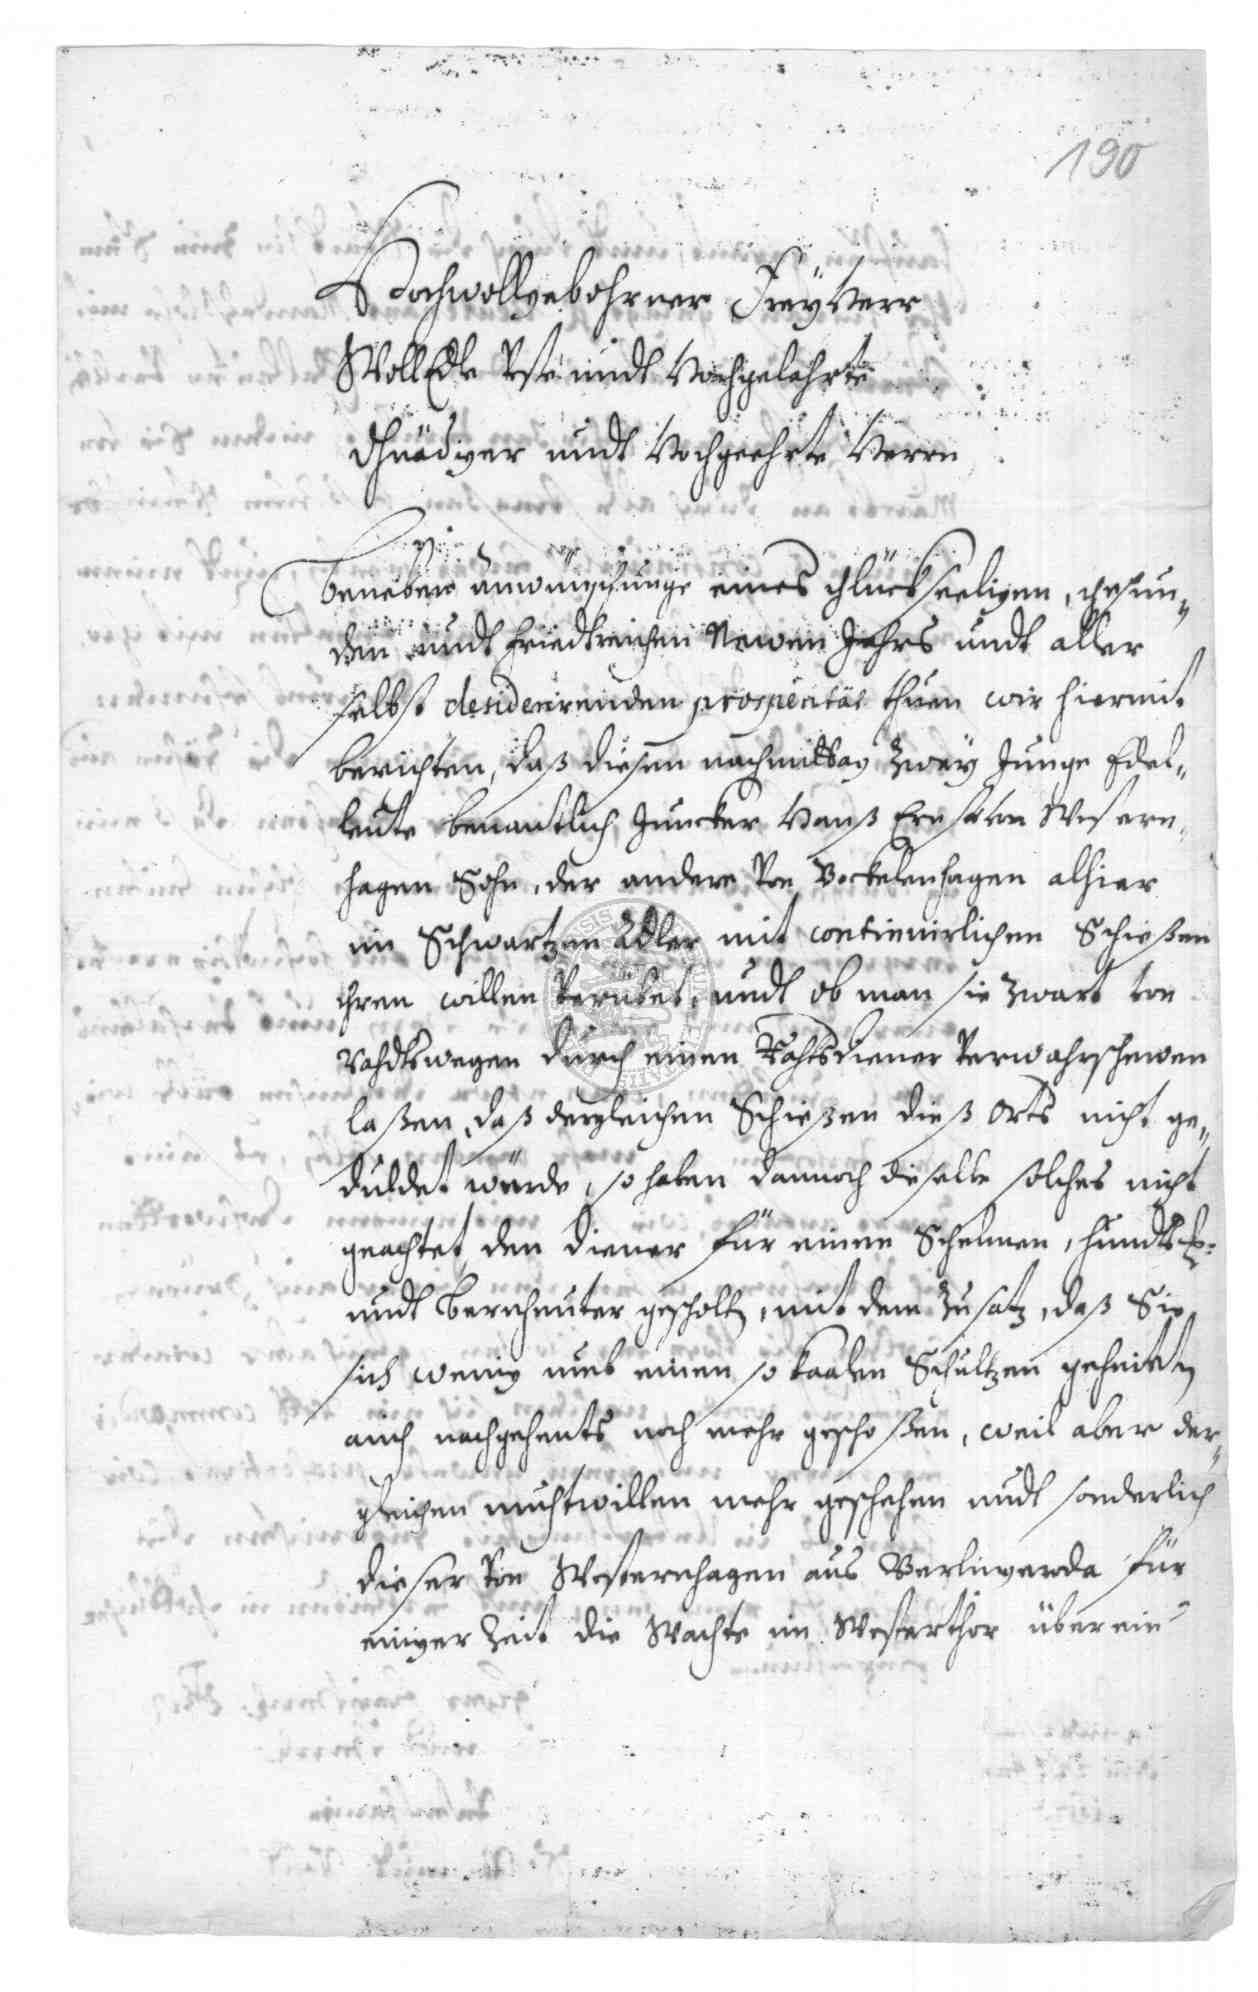 190
Hochwollgebohrner FreyHerr
WollEdle Veste undt Hochgelahrte
Gnädiger undt Hochgeehrte Herrn
Beneben anwünschunge eines glückseeligen, gesun-
den undt friedtreichen Newen Jahrs undt aller
selbst desiderirenden prosperität thuen wir hiermit
berichten, daß diesen nachmittag zwey Junge Edel-
leute benantlich Juncker Hanß Ernst von Western-
hagen Sohn, der andere von Bockelenhagen alhier
im Schwartzen Adler mit continuirlichen Schießen
ihren willen verübet, undt ob man sie zwart von
Rahdtswegen durch einen Rahtsdiener verwahrschewen
laßen, daß dergleichen Schießen dieß Orts nicht ge-
duldet würde, so haben dannoch dieselbe solches nicht
geachtet den diener für einen Schelmen, Hundts
undt Bernheuter gescholten, mit dem Zusatz, daß Sie
sich wenig umb einen so kaalen Schultzen geheiten
auch nachgehents noch mehr geschoßen, weil aber der-
gleichen muthwillen mehr geschehen undt sonderlich
dieser von Westernhagen aus Berlingeroda für
einiger Zeit die Wachte im Westerthor über ein